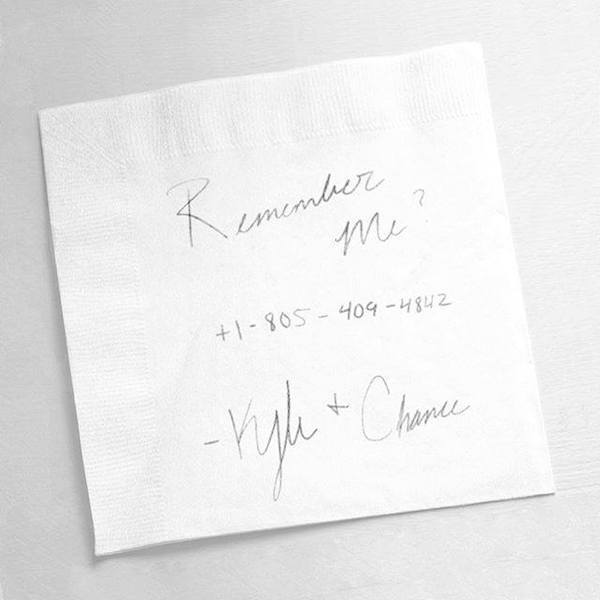 Remember
Me?
+1-805-409-4842
-Kyle + Chance